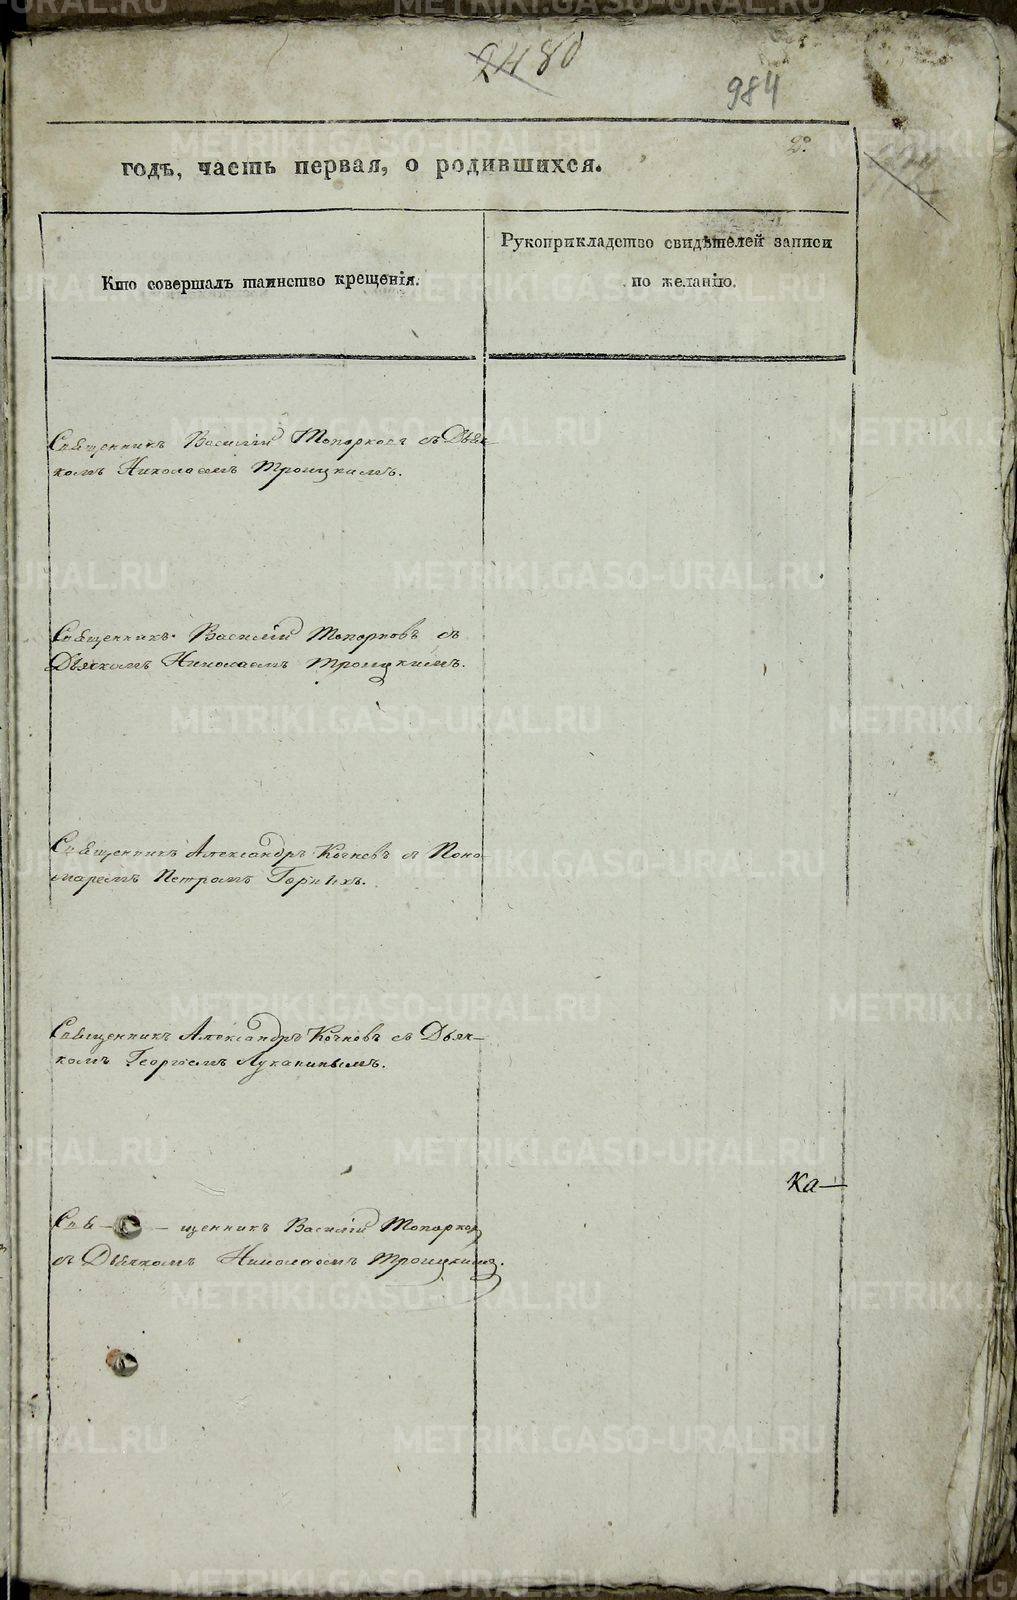 2480
984
2º.
годъ, часть первая, о родившихся.
Кто совершалъ таинство крещенія.
Рукоприкладство свидѣтелей записи
по желанію.
Священникъ Василій Топорковъ съ Дьяч-
комъ Николаемъ Троицкимъ.
Священникъ Василій Топорковъ съ
Дьячкомъ Николаемъ Троицкимъ.
Священникъ Александръ Кочневъ съ Поно-
маремъ Петромъ
Священникъ Александръ Кочневъ съ Дьяч-
комъ Георгіемъ Луканинымъ.
Ка—
Свя— — щенникъ Василій Топорковъ
съ Дьячкомъ Николаемъ Троицкимъ.
METRIKI.GASO-URAL.RU